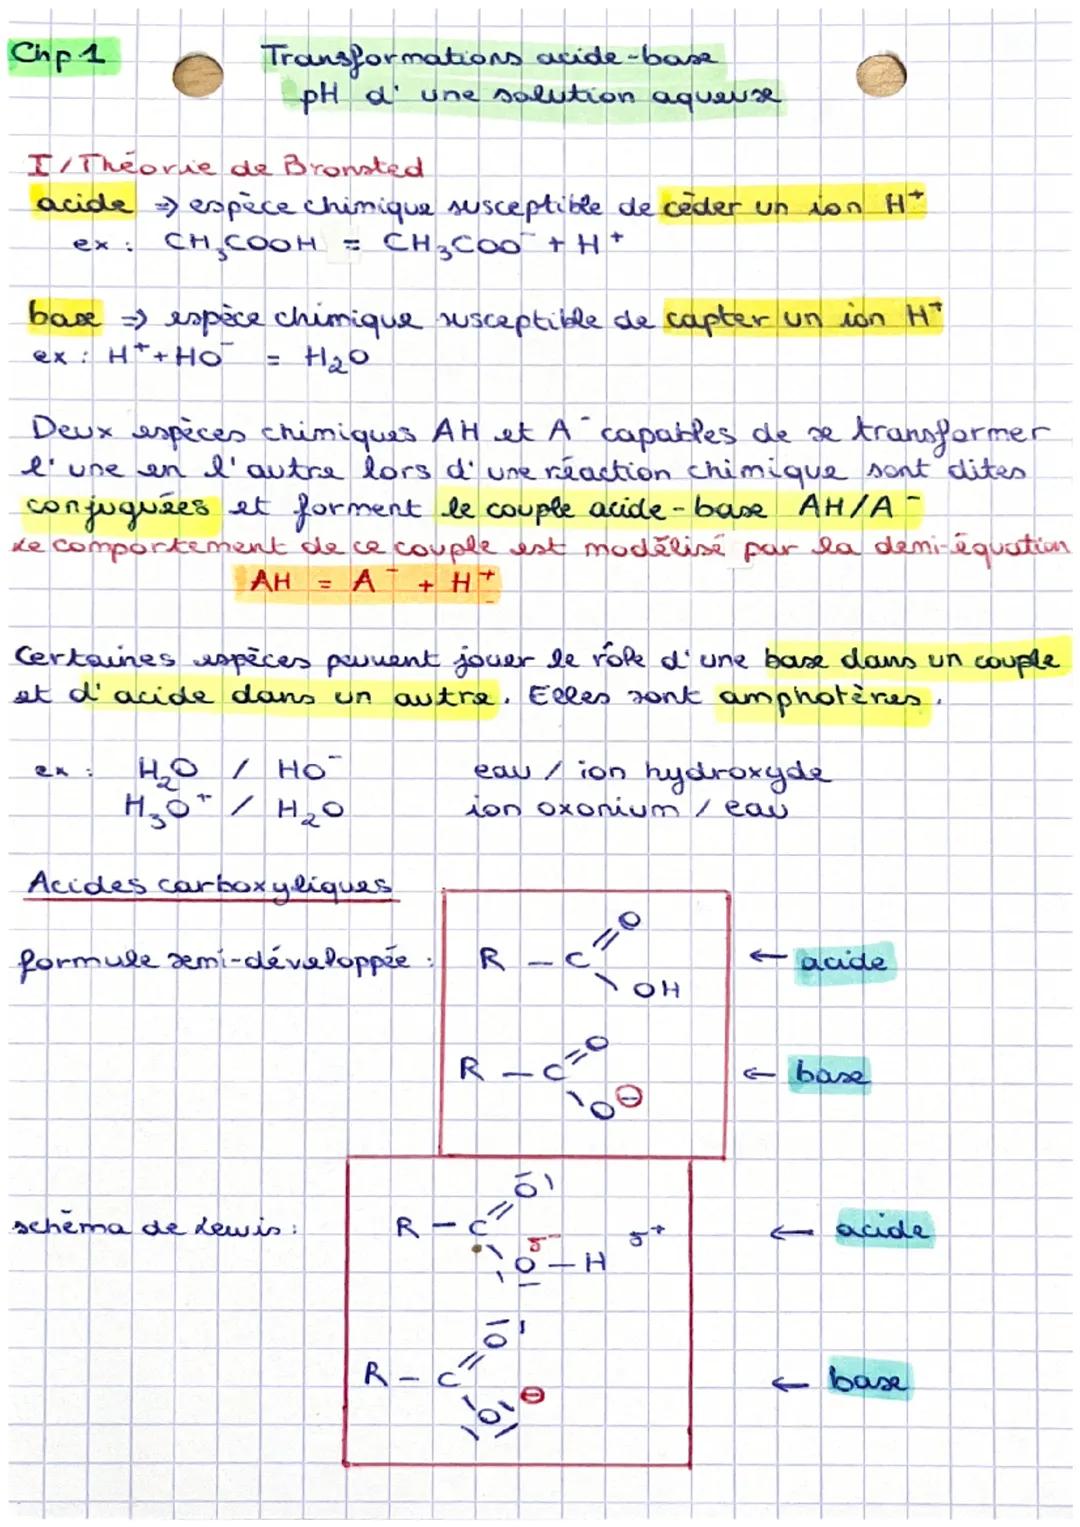 Chp 1
Transformations acide-base
pH d'une solution aqueuse
I/ Théorie de Bronsted
acide ⇒ espèce chimique susceptible de céder un ion H⁺
ex : CH₃COOH = CH₃COO⁻ + H⁺
base ⇒ espèce chimique susceptible de capter un ion H⁺
ex : H⁺ + HO⁻ = H₂O
Deux espèces chimiques AH et A⁻ capables de se transformer
l'une en l'autre lors d'une réaction chimique sont dites
conjuguées et forment le couple acide-base AH/A⁻
Le comportement de ce couple est modélisé par la demi-équation
AH = A⁻ + H⁺
Certaines espèces peuvent jouer le rôle d'une base dans un couple
et d'acide dans un autre. Elles sont amphotères.
ex : H₂O / HO⁻ eau / ion hydroxyde
H₃O⁺ / H₂O ion oxonium / eau
Acides carboxyliques
O
formule semi-développée : R – C ← acide
OH
O
R – C ← base
O⊖
O
schéma de Lewis : R – C δ⁻ δ⁺ ← acide
O – H
O
R – C ⊖ ← base
O